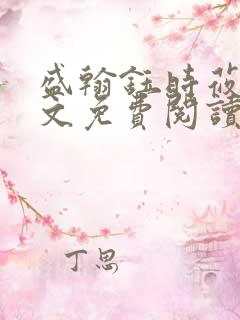 盛翰鈺時莜
文免費閱讀
丁思